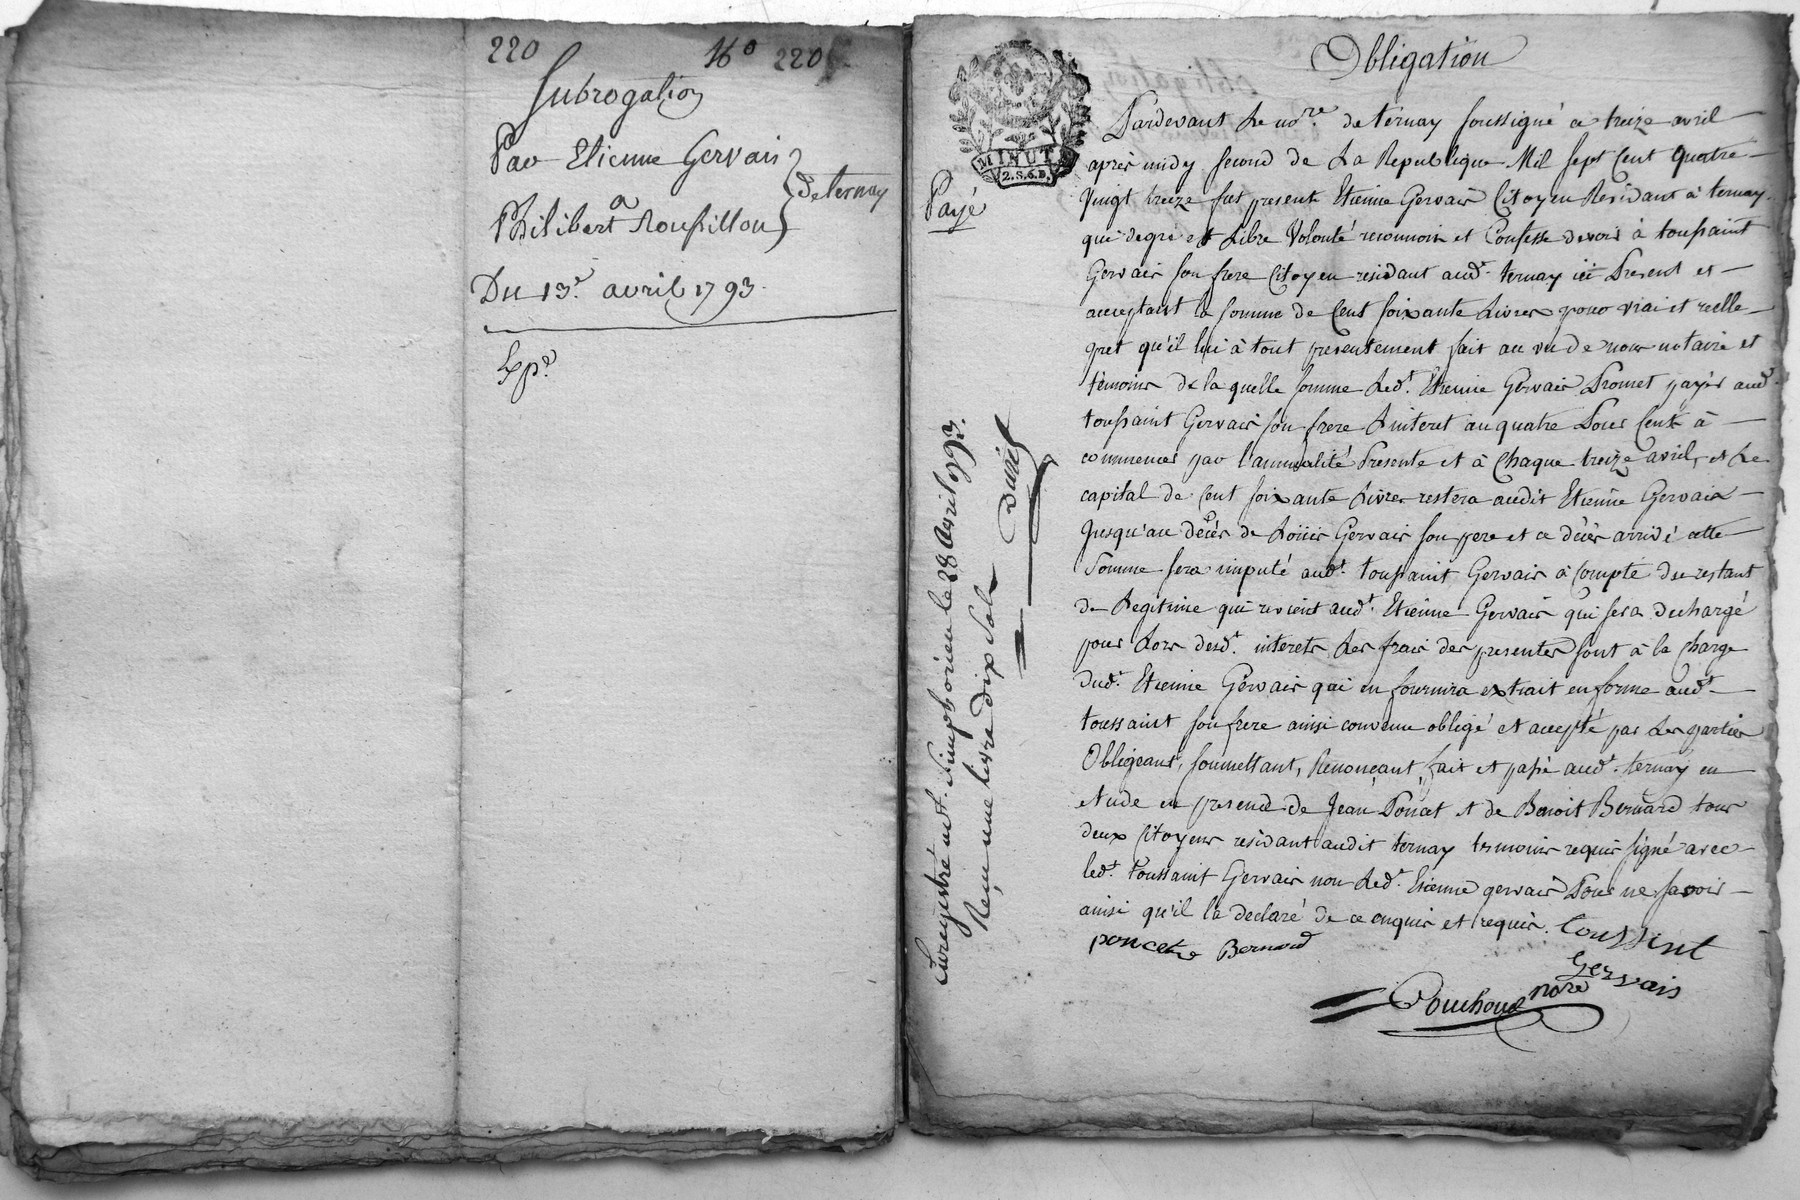 220 No 220
Subrogation
Par Etienne Gervais
a
Philibert Roussillon
de ternay
Du 13e. avril 1793.
Exp.e
Obligation
MINUT
2.S.6.D.
Payé
Pardevant Le nore. de ternay soussigné ce treize avril
après midy second de La Republique Mil sept Cent quatre
Vingt treize fut present Etienne Gervais Citoyen Residant à ternay.
qui degré et Libre Volonté reconnoit et Confesse devoir à toussaint
Gervais son frere Citoyen residant audt. ternay ici Present et
acceptant la somme de Cent soixante Livres pour vrai et reelle
pret qu'il lui à tout presentement fait au vu de nous notaire et
temoins de la quelle somme Ledt. Etienne Gervais Promet payer audt.
toussaint Gervais son frere L'interet au quatre Pour Cent à
commencer par l'annualité Presente et à Chaque treize avril, et Le
capital de Cent soixante Livres restera audit Etienne Gervais
Jusqu'au décès de Loüis Gervais son pere et ce décès arrivé cette
Somme sera imputé audt. toussaint Gervais à Compte du restant
de Legitime qui revient audt. Etienne Gervais qui sera dechargé
pour Lors desdt. interets Les frais des presentes sont à la Charge
dudt. Etienne Gervais qui en fournira extrait en forme audt.
toussaint son frere ainsi convenu obligé et accepté par Les parties
Obligeant, soumettant, Renonçant, fait et passé audt. ternay en
etude en presence de Jean Poncet et de Benoit Bernard tous
deux Citoyens residant audit ternay temoins requis signé avec
ledt. Toussaint Gervais non Ledt. Etienne gervais Pour ne savoir
ainsi qu'il l'a declaré de ce enquis et requis. toussint
poncet Bernard
Gervais
nore
Enregistré à st. simphorien le 28 Avril 1793.
Reçu une livre dix sols